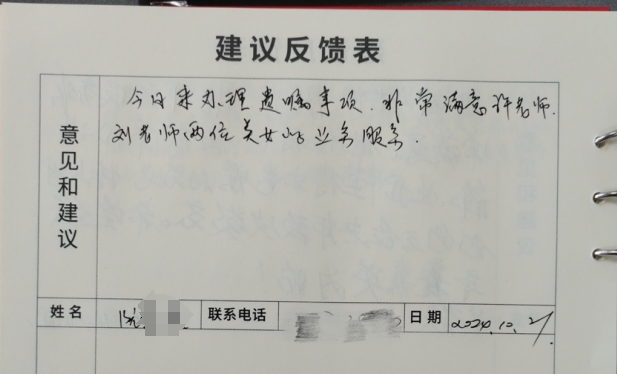 建议反馈表
意见和建议
今日来办理遗嘱事项,非常满意许老师.
刘老师两位美女的业务服务.
姓名
联系电话
日期 2024.10.21